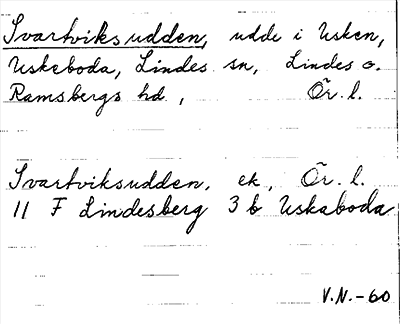 Svartviksudden, udde i Usken,
Uskeboda, Lindes sn, Lindes o.
Ramsbergs hd, Ör. l.
Svartviksudden, ek, Ör. l.
11 F Lindesberg 3 b Uskaboda
V.N.-60